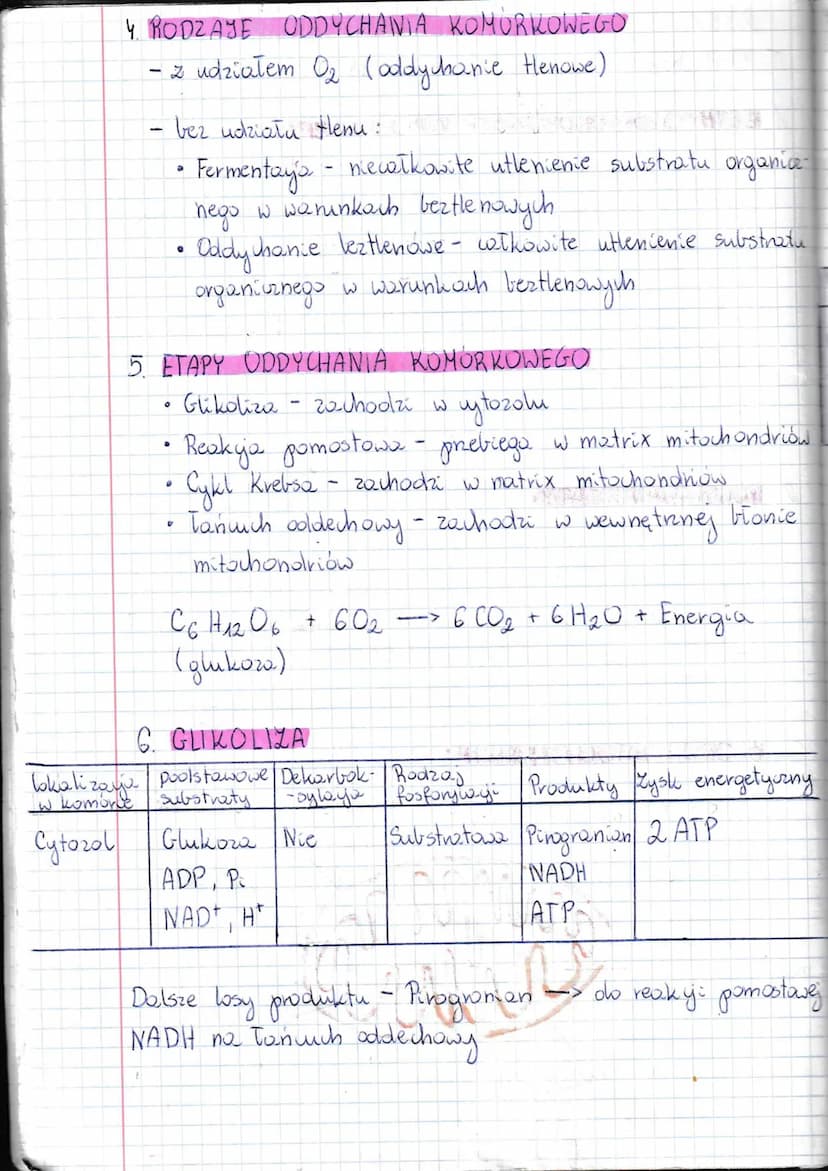 4. RODZAJE ODDYCHANIA KOMÓRKOWEGO
- z udziałem O₂ (oddychanie tlenowe)
- bez udziału tlenu:
• Fermentacja - niecałkowite utlenienie substratu organicz-
nego w warunkach beztlenowych
• Oddychanie beztlenowe - całkowite utlenienie substratu
organicznego w warunkach beztlenowych
5. ETAPY ODDYCHANIA KOMÓRKOWEGO
• Glikoliza - zachodzi w cytozolu
• Reakcja pomostowa - przebiega w matrix mitochondriów
• Cykl Krebsa - zachodzi w matrix mitochondriów
• Łańcuch oddechowy - zachodzi w wewnętrznej błonie
mitochondriów
C₆H₁₂O₆ + 6O₂ —> 6CO₂ + 6H₂O + Energia
(glukoza)
6. GLIKOLIZA
Lokalizacja w komórce | podstawowe substraty | Dekarbok--sylacja | Rodzaj fosforylacji | Produkty | Zysk energetyczny
Cytozol | Glukoza | Nie | Substratowa | Pirogronian | 2 ATP
ADP, Pi | NADH
NAD⁺, H⁺ | ATP
Dalsze losy produktu - Pirogronian —> do reakcji pomostowej
NADH na łańcuch oddechowy